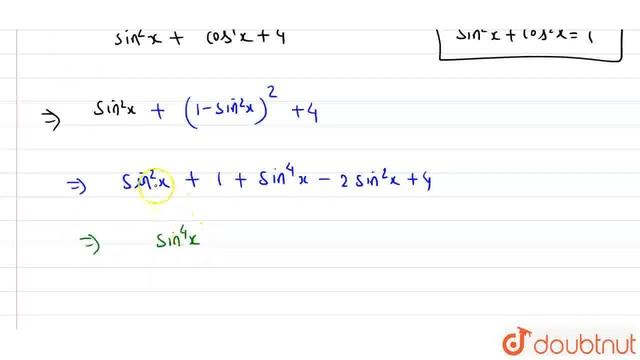 sin²x + cos⁴x + 4
sin²x + cos²x = 1
⇒ sin²x + (1 - sin²x)² + 4
⇒ sin²x + 1 + sin⁴x - 2 sin²x + 4
⇒ sin⁴x
doubtnut